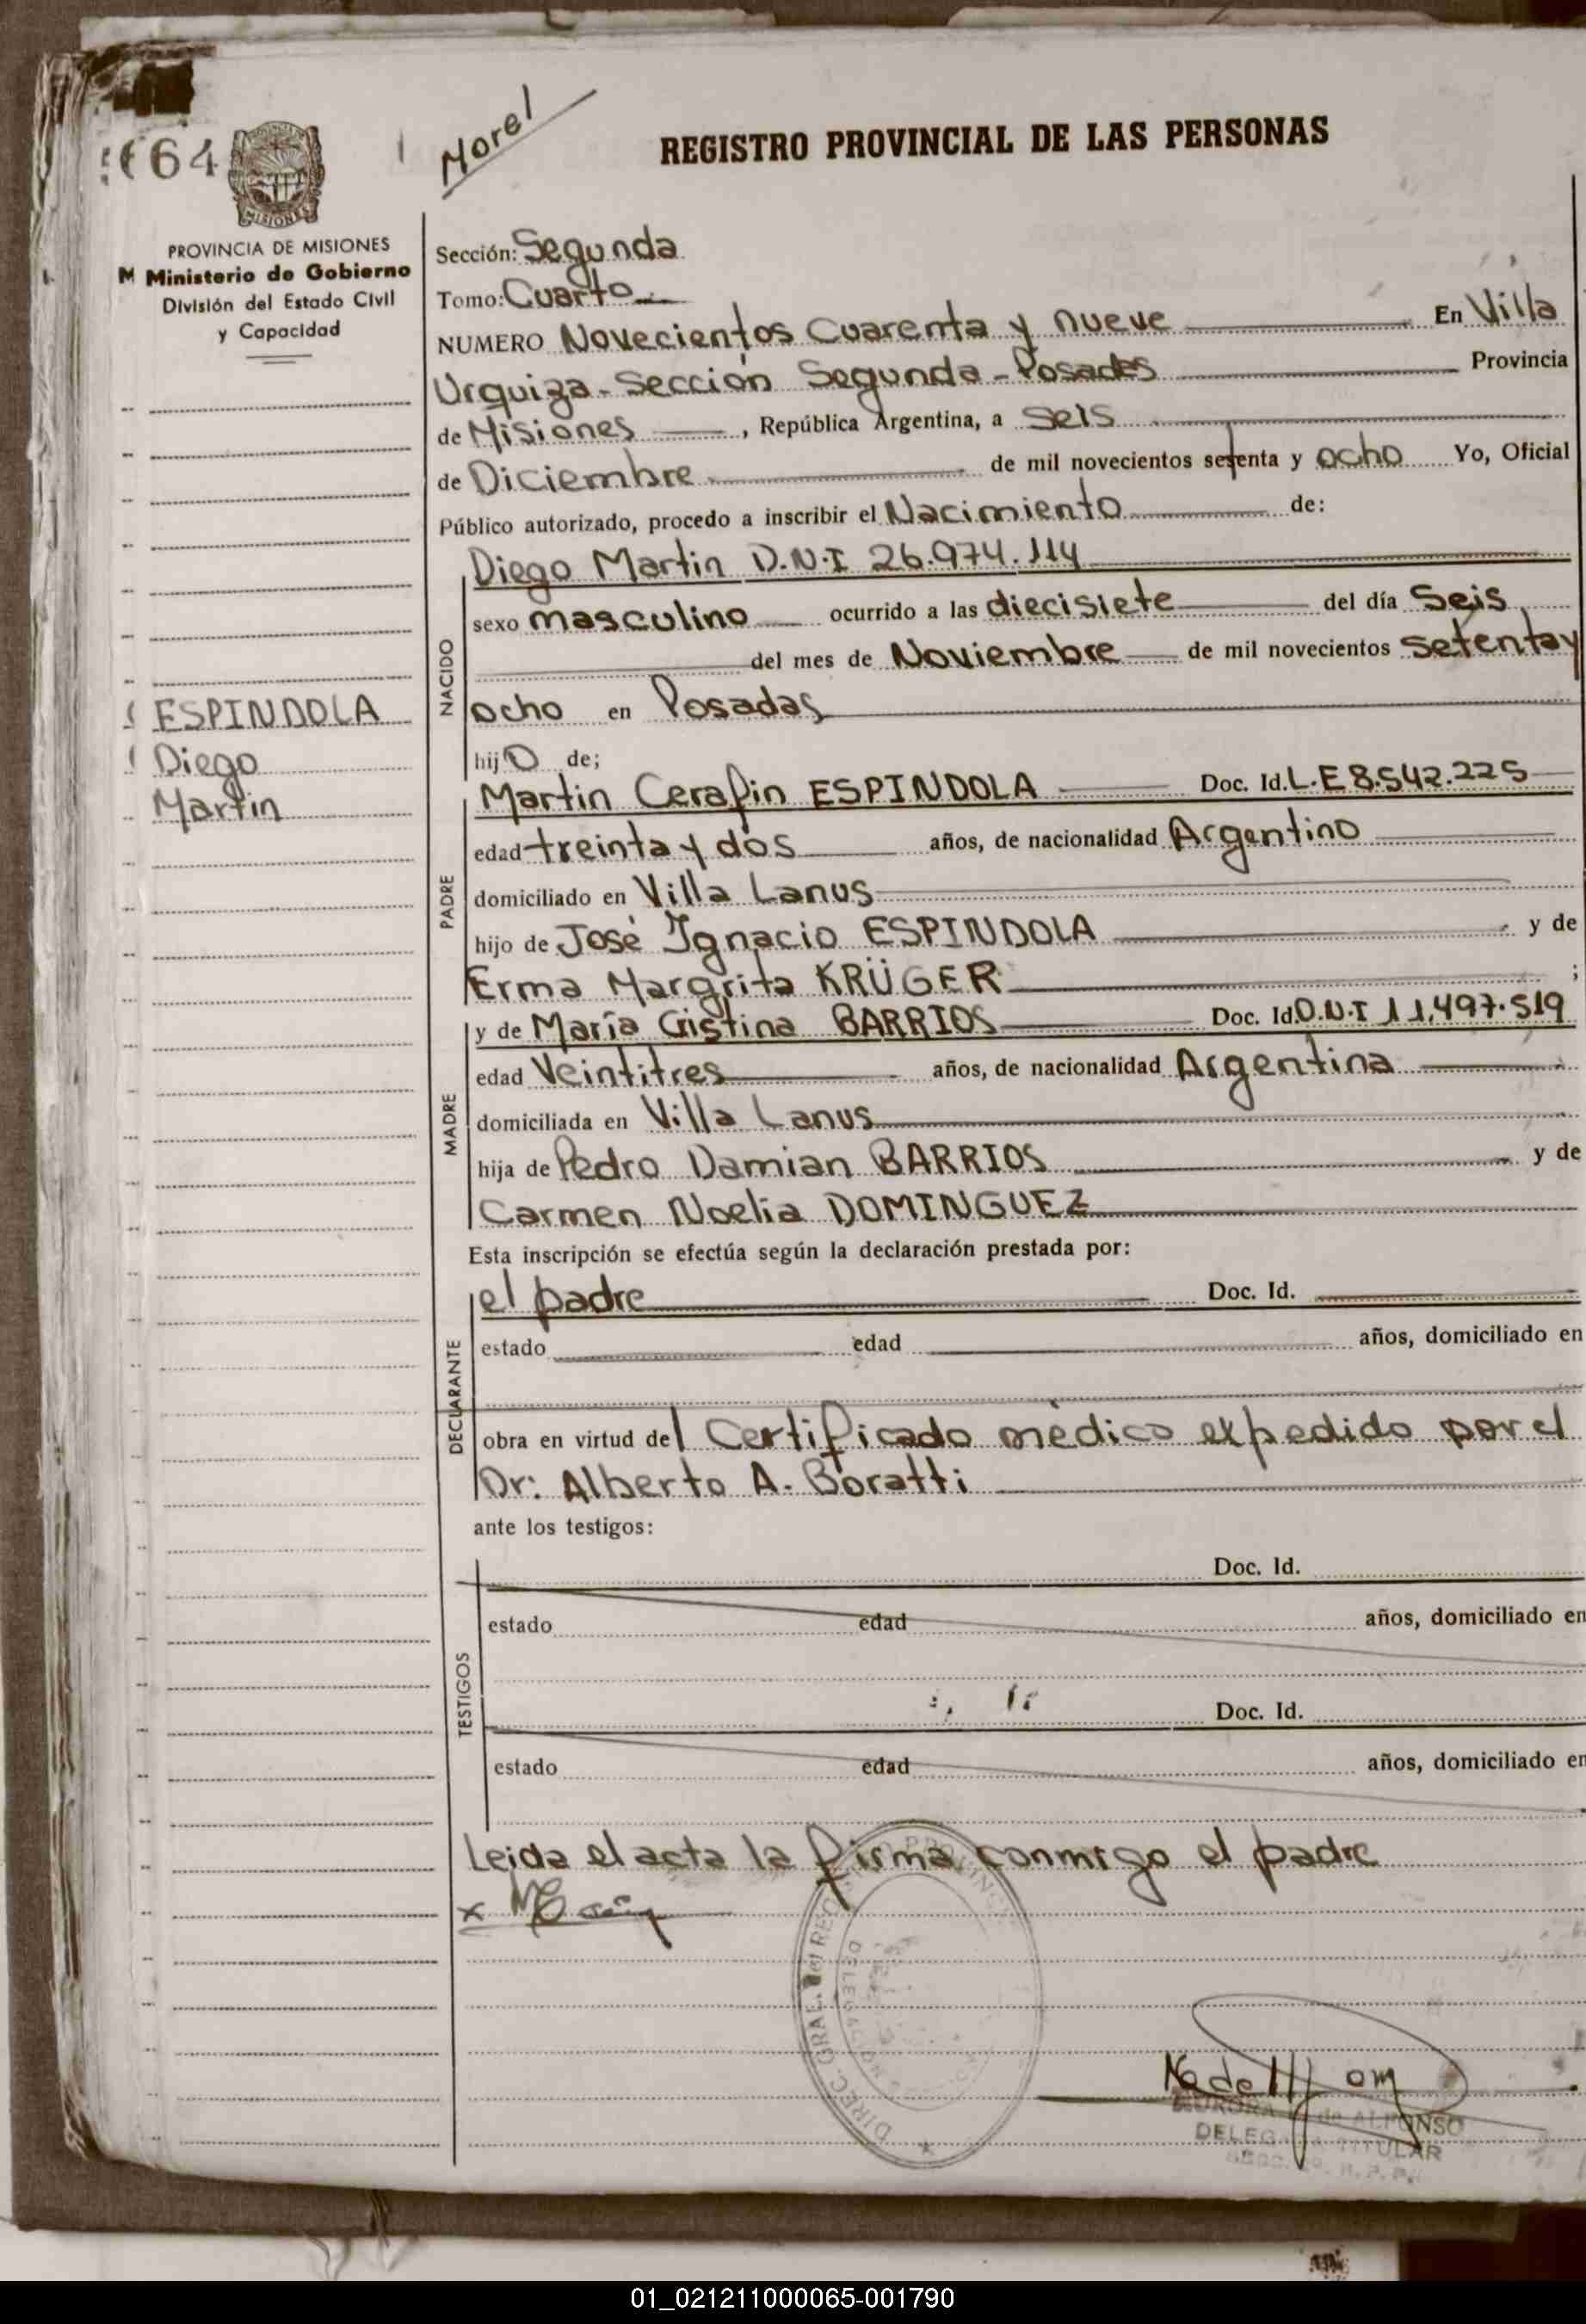 664
Morel
REGISTRO PROVINCIAL DE LAS PERSONAS
MISIONES
PROVINCIA DE MISIONES
M Ministerio de Gobierno
División del Estado Civil
y Capacidad
ESPINDOLA
Diego
Martin
Sección: Segunda
Tomo: Cuarto
NUMERO Novecientos Cuarenta y nueve En Villa
Urquiza - Sección Segunda - Posadas Provincia
de Misiones, República Argentina, a Seis
de Diciembre de mil novecientos setenta y ocho Yo, Oficial
Público autorizado, procedo a inscribir el Nacimiento de:
NACIDO
Diego Martin D.N.I 26.974.114
sexo masculino ocurrido a las diecisiete del día Seis
del mes de Noviembre de mil novecientos setenta y
ocho en Posadas
hijo de;
PADRE
Martin Cerafin ESPINDOLA Doc. Id. L.E 8.542.225
edad treinta y dos años, de nacionalidad Argentino
domiciliado en Villa Lanus
hijo de José Ignacio ESPINDOLA y de
Erma Margrita KRÜGER ;
MADRE
y de María Cristina BARRIOS Doc. Id. D.N.I 11.497.519
edad Veintitres años, de nacionalidad Argentina
domiciliada en Villa Lanus
hija de Pedro Damian BARRIOS y de
Carmen Noelia DOMINGUEZ
Esta inscripción se efectúa según la declaración prestada por:
DECLARANTE
el padre Doc. Id.
estado edad años, domiciliado en
obra en virtud del Certificado mèdico expedido por el
Dr: Alberto A. Boratti
ante los testigos:
TESTIGOS
Doc. Id.
estado edad años, domiciliado en
Doc. Id.
estado edad años, domiciliado en
Leida el acta la firma conmigo el padre
x
DIREC. GRAL. del REG
de ALFONSO
TITULAR
01_021211000065-001790